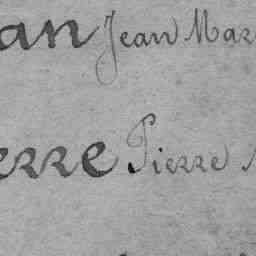 an Jean Mar
erre Pierre